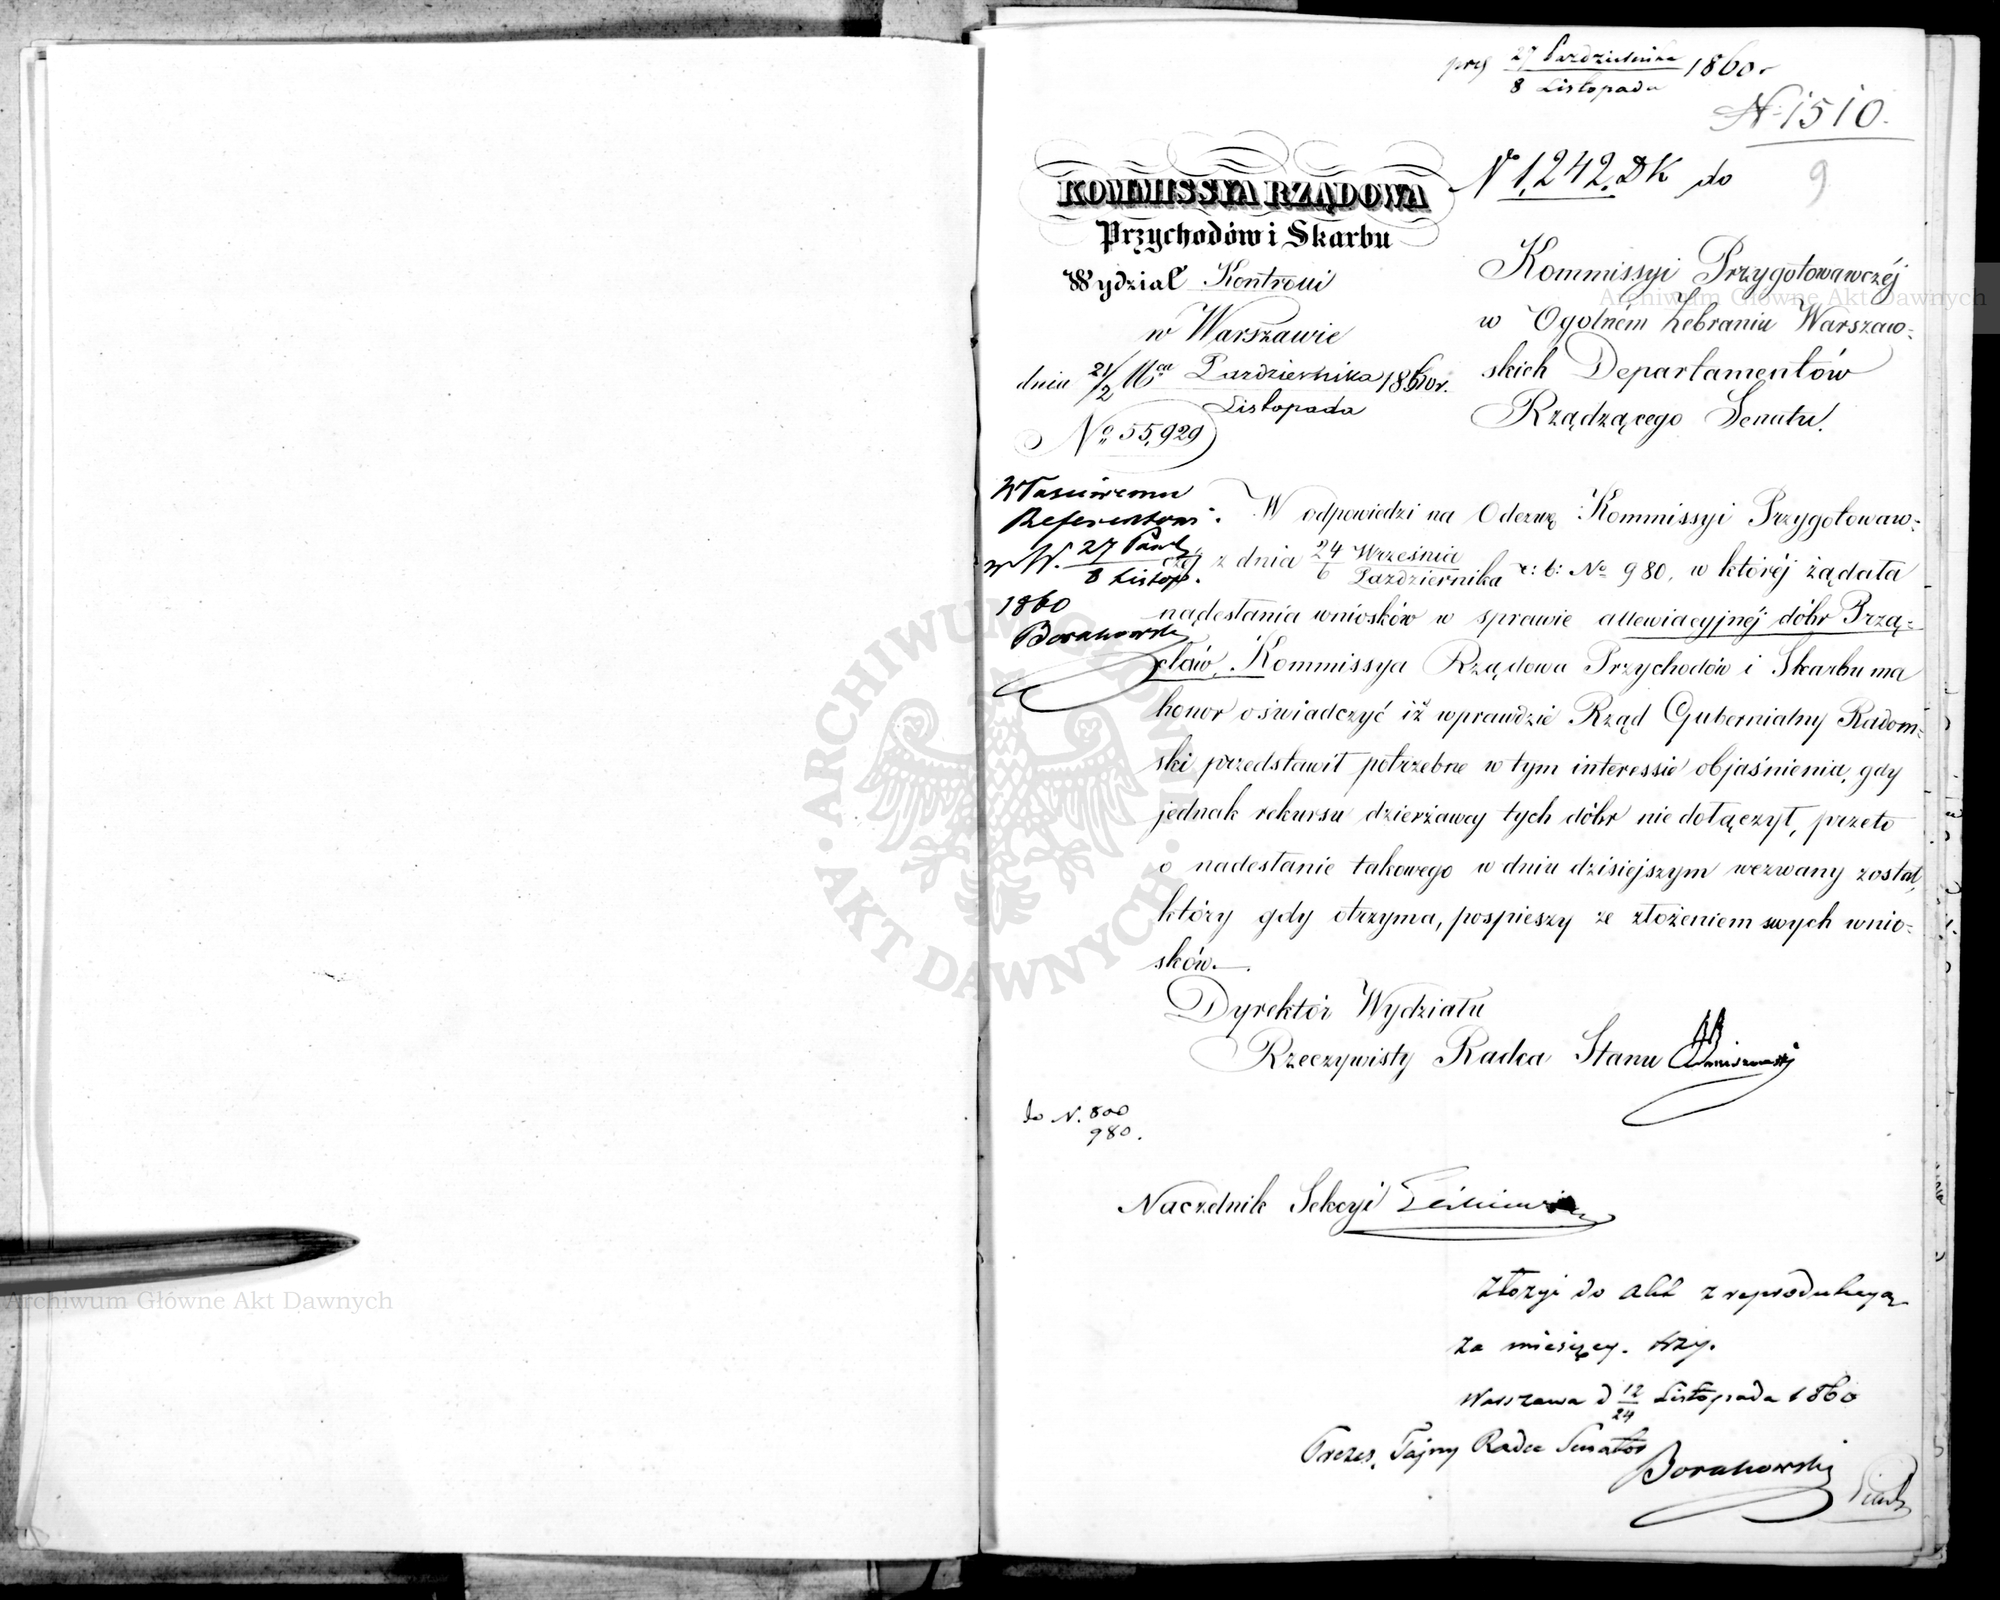 prez 27 Października
8 Listopada 1860 r
N 1510.
9
KOMMISSYA RZĄDOWA
Przychodów i Skarbu
Wydział Kontroli
w Warszawie
dnia 21/2 Mca Października 1860 r.
Listopada
No 55,929
No 1,242. DK do
Kommissyi Przygotowawczéj
w Ogolném Zebraniu Warszaw-
skich Departamentów
Rządzącego Senatu.
Właściwemu
Referentowi.
w W. 27 Paźd.
8 Listop.
1860
W odpowiedzi na Odezwę Kommissyi Przygotowaw-
czéj z dnia 24 Września
6 Października r: b: No 980, w któréj żądała
nadesłania wniosków w sprawie allewiacyjnéj dóbr Przą-
cław, Kommissya Rządowa Przychodów i Skarbu ma
honor oświadczyć iż wprawdzie Rząd Gubernialny Radom-
ski przedstawił potrzebne w tym interessie objaśnienia, gdy
jednak rekursu dzierżawcy tych dóbr nie dołączył, przeto
o nadesłanie takowego w dniu dzisiejszym wezwany został,
który gdy otrzyma, pospieszy ze złożeniem swych wnio-
sków.
Dyrektór Wydziału
Rzeczywisty Radca Stanu
do N. 800
980.
Naczelnik Sekcyi
Złożyć do akt z reprodukcyą
za miesięcy. trzy.
Warszawa d 12/24 Listopada 1860
Prezes, Tajny Radca Senator
Archiwum Główne Akt Dawnych
Archiwum Główne Akt Dawnych
ARCHIWUM GŁÓWNE
AKT DAWNYCH